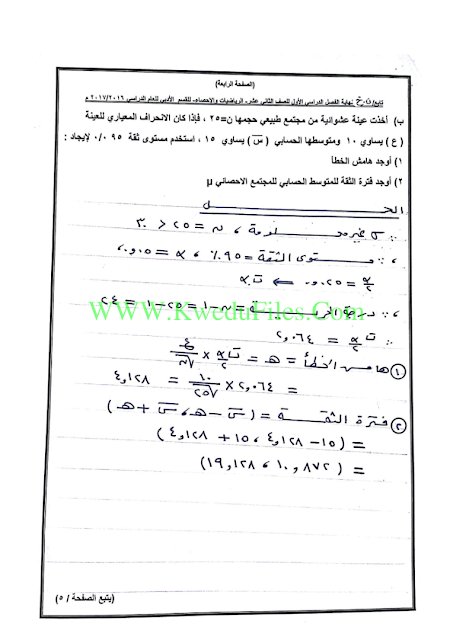 (الصفحة الرابعة)
تابع/ نهاية الفصل الدراسي الأول للصف الثاني عشر- الرياضيات والإحصاء- للقسم الأدبي للعام الدراسي ٢٠١٧/٢٠١٦ م
ب) أخذت عينة عشوائية من مجتمع طبيعي حجمها ن=٢٥ ، فإذا كان الانحراف المعياري للعينة
( ع ) يساوي ١٠ ومتوسطها الحسابي ( س̄ ) يساوي ١٥ ، استخدم مستوى ثقة ٩٥ ٪ لإيجاد :
١) أوجد هامش الخطأ
٢) أوجد فترة الثقة للمتوسط الحسابي للمجتمع الاحصائي µ
الحـــــــــــــل
∵ σ غير معلومة ، ن = ٢٥ < ٣٠
، ∵ مستوى الثقة = ٩٥٪ ، α = ٠,٠٥
α/٢ = ٠,٠٢٥ ⇐ ت α/٢
www.KweduFiles.Com
، ∵ درجة الحرية = ن - ١ = ٢٥ - ١ = ٢٤
∴ ت α/٢ = ٢,٠٦٤
① هامش الخطأ = هـ = ت α/٢ × ع/√ن
= ٢,٠٦٤ × ١٠/√٢٥ = ٤,١٢٨
② فترة الثقة = ( س̄ - هـ ، س̄ + هـ )
= ( ١٥ - ٤,١٢٨ ، ١٥ + ٤,١٢٨ )
= ( ١٠,٨٧٢ ، ١٩,١٢٨ )
(يتبع الصفحة / ٥)